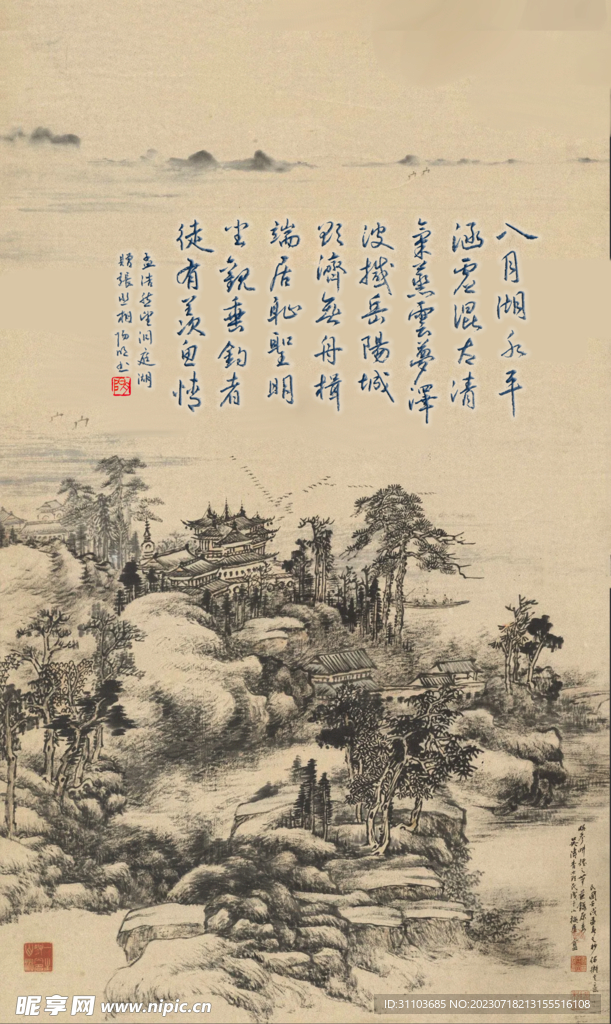 八月湖水平
涵虛混太清
氣蒸雲夢澤
波撼岳陽城
欲濟無舟楫
端居恥聖明
坐觀垂釣者
徒有羨魚情
孟浩然望洞庭湖
贈張丞相
昵享网 www.nipic.cn
ID:31103685 NO:20230718213155516108